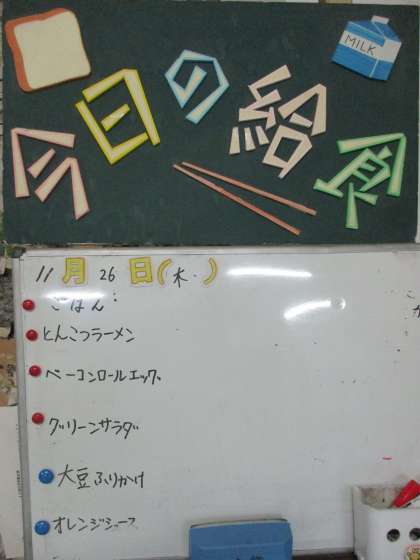 MILK
今日の給食
11月26日(木・)
ごはん
とんこつラーメン
ベーコンロールエッグ
グリーンサラダ
大豆ふりかけ
オレンジジュース